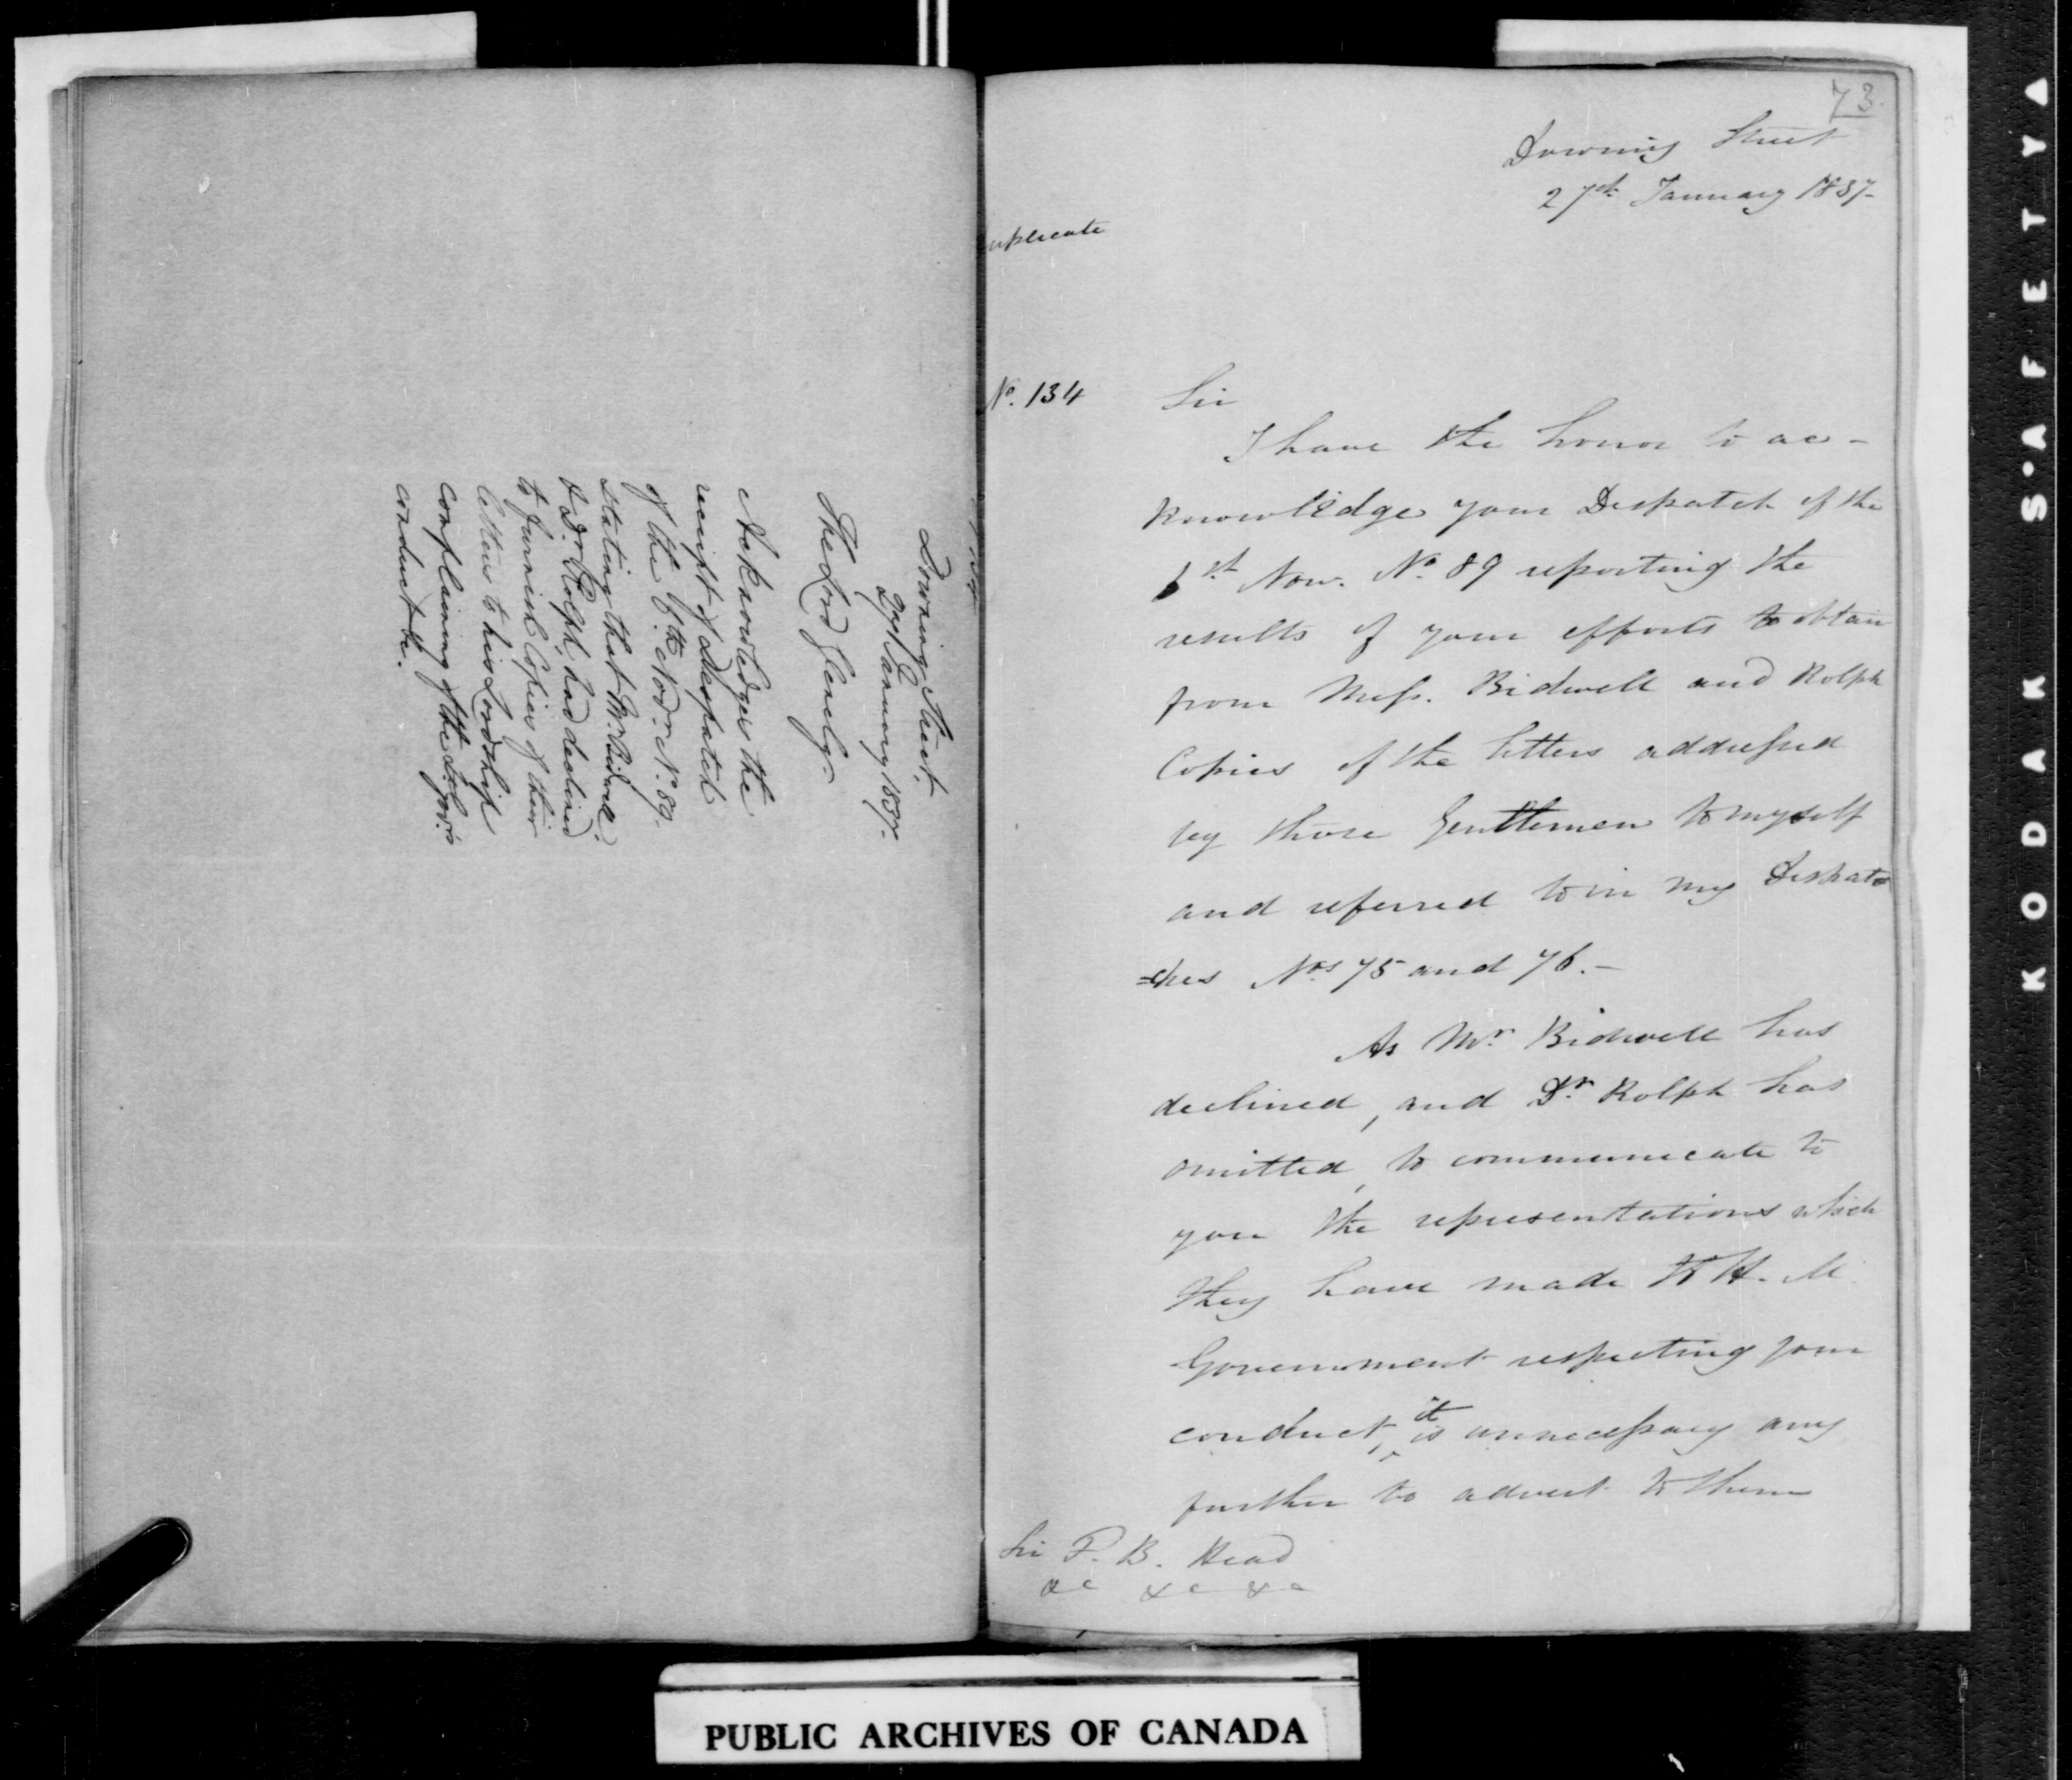 Downing Street.
27 January 1837.
The Lord Glenelg.
Acknowledges the
receipt of Despatch
of the 6th Novr. No. 89.
stating that Mr. Bidwell
& Dr. Rolph, had declined
to furnish Copies of their
letters to his Lordship
complaining of the Lt. Govr's
conduct &c.
73.
Downing Street
27th January 1837-
uplicate
No. 134
Sir
I have the honor to ac-
knowledge your Despatch of the
Nov. No. 89 reporting the
results of your efforts to obtain
from Mess. Bidwell and Rolph
Copies of the letters addressed
by those Gentlemen to myself
and referred to in my Despat
=ches Nos 75 and 76.-
As Mr. Bidwell has
declined, and Dr. Rolph has
omitted, to communicate to
you the representations which
they have made to H. M.
Government respecting your
conduct, it is unnecessary any
further to advert to them
Sir F. B. Head
&c &c &c
PUBLIC ARCHIVES OF CANADA
KODAK S'AFETY